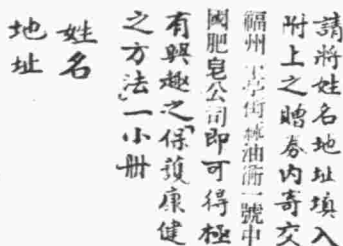 請將姓名地址填入
附上之贈券內寄交
福州 亭街 油衕一號中
國肥皂公司即可得極
有興趣之「保護康健
之方法」一小冊
姓名
地址